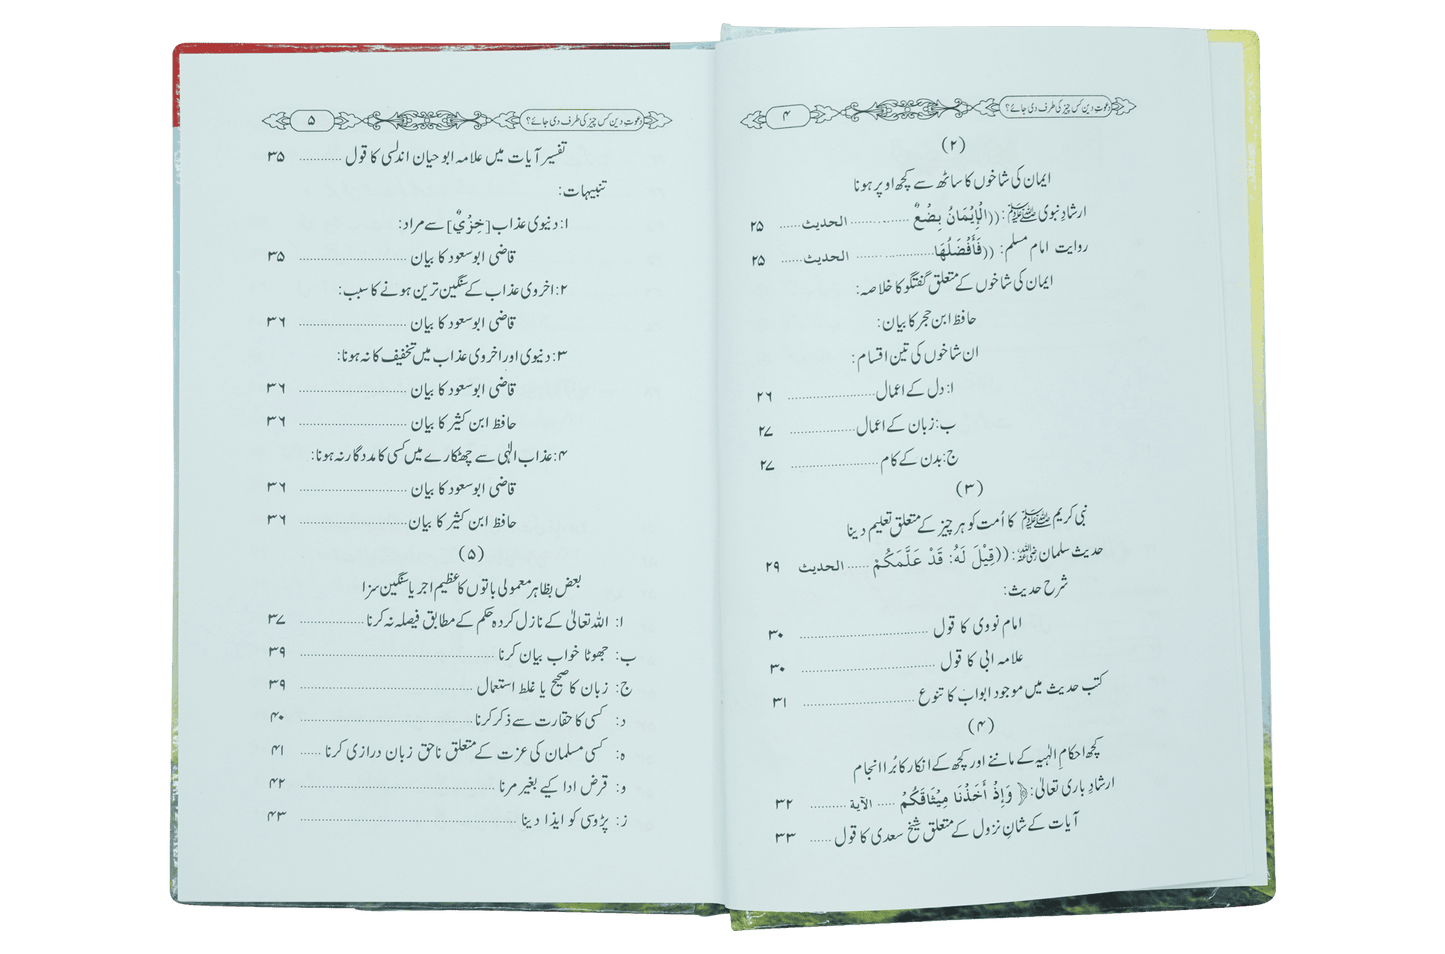 دعوتِ دین کس چیز کی طرف دی جائے؟ ۴
(۲)
ایمان کی شاخوں کا ساٹھ سے کچھ اوپر ہونا
ارشادِ نبوی ﷺ: ((الْإِيْمَانُ بِضْعٌ ........ الحديث ...... ۲۵
روایت امام مسلم: ((فَأَفْضَلُهَا ........ الحديث ...... ۲۵
ایمان کی شاخوں کے متعلق گفتگو کا خلاصہ:
حافظ ابن حجر کا بیان:
ان شاخوں کی تین اقسام:
ا: دل کے اعمال ........ ۲۶
ب: زبان کے اعمال ........ ۲۷
ج: بدن کے کام ........ ۲۷
(۳)
نبی کریم ﷺ کا اُمت کو ہر چیز کے متعلق تعلیم دینا
حدیث سلمان رضی اللہ عنہ: ((قِيْلَ لَهُ: قَدْ عَلَّمَكُمْ ...... الحديث ۲۹
شرح حدیث:
امام نووی کا قول ........ ۳۰
علامہ ابی کا قول ........ ۳۰
کتب حدیث میں موجود ابواب کا تنوع ........ ۳۱
(۴)
کچھ احکامِ الٰہیہ کے ماننے اور کچھ کے انکار کا بُرا انجام
ارشادِ باری تعالیٰ: ﴿وَإِذْ أَخَذْنَا مِيْثَاقَكُمْ ..... الآية ........ ۳۲
آیات کے شانِ نزول کے متعلق شیخ سعدی کا قول ...... ۳۳
دعوتِ دین کس چیز کی طرف دی جائے؟ ۵
تفسیر آیات میں علامہ ابو حیان اندلسی کا قول ........ ۳۵
تنبیہات:
۱: دنیوی عذاب [خِزْيٌ] سے مراد:
قاضی ابوسعود کا بیان ........ ۳۵
۲: اخروی عذاب کے سنگین ترین ہونے کا سبب:
قاضی ابوسعود کا بیان ........ ۳۶
۳: دنیوی اور اخروی عذاب میں تخفیف کا نہ ہونا:
قاضی ابوسعود کا بیان ........ ۳۶
حافظ ابن کثیر کا بیان ........ ۳۶
۴: عذاب الٰہی سے چھٹکارے میں کسی کا مددگار نہ ہونا:
قاضی ابوسعود کا بیان ........ ۳۶
حافظ ابن کثیر کا بیان ........ ۳۶
(۵)
بعض بظاہر معمولی باتوں کا عظیم اجر یا سنگین سزا
ا: اللہ تعالیٰ کے نازل کردہ حکم کے مطابق فیصلہ نہ کرنا ........ ۳۷
ب: جھوٹا خواب بیان کرنا ........ ۳۹
ج: زبان کا صحیح یا غلط استعمال ........ ۳۹
د: کسی کا حقارت سے ذکر کرنا ........ ۴۰
ہ: کسی مسلمان کی عزت کے متعلق ناحق زبان درازی کرنا ...... ۴۱
و: قرض ادا کیے بغیر مرنا ........ ۴۲
ز: پڑوسی کو ایذا دینا ........ ۴۳